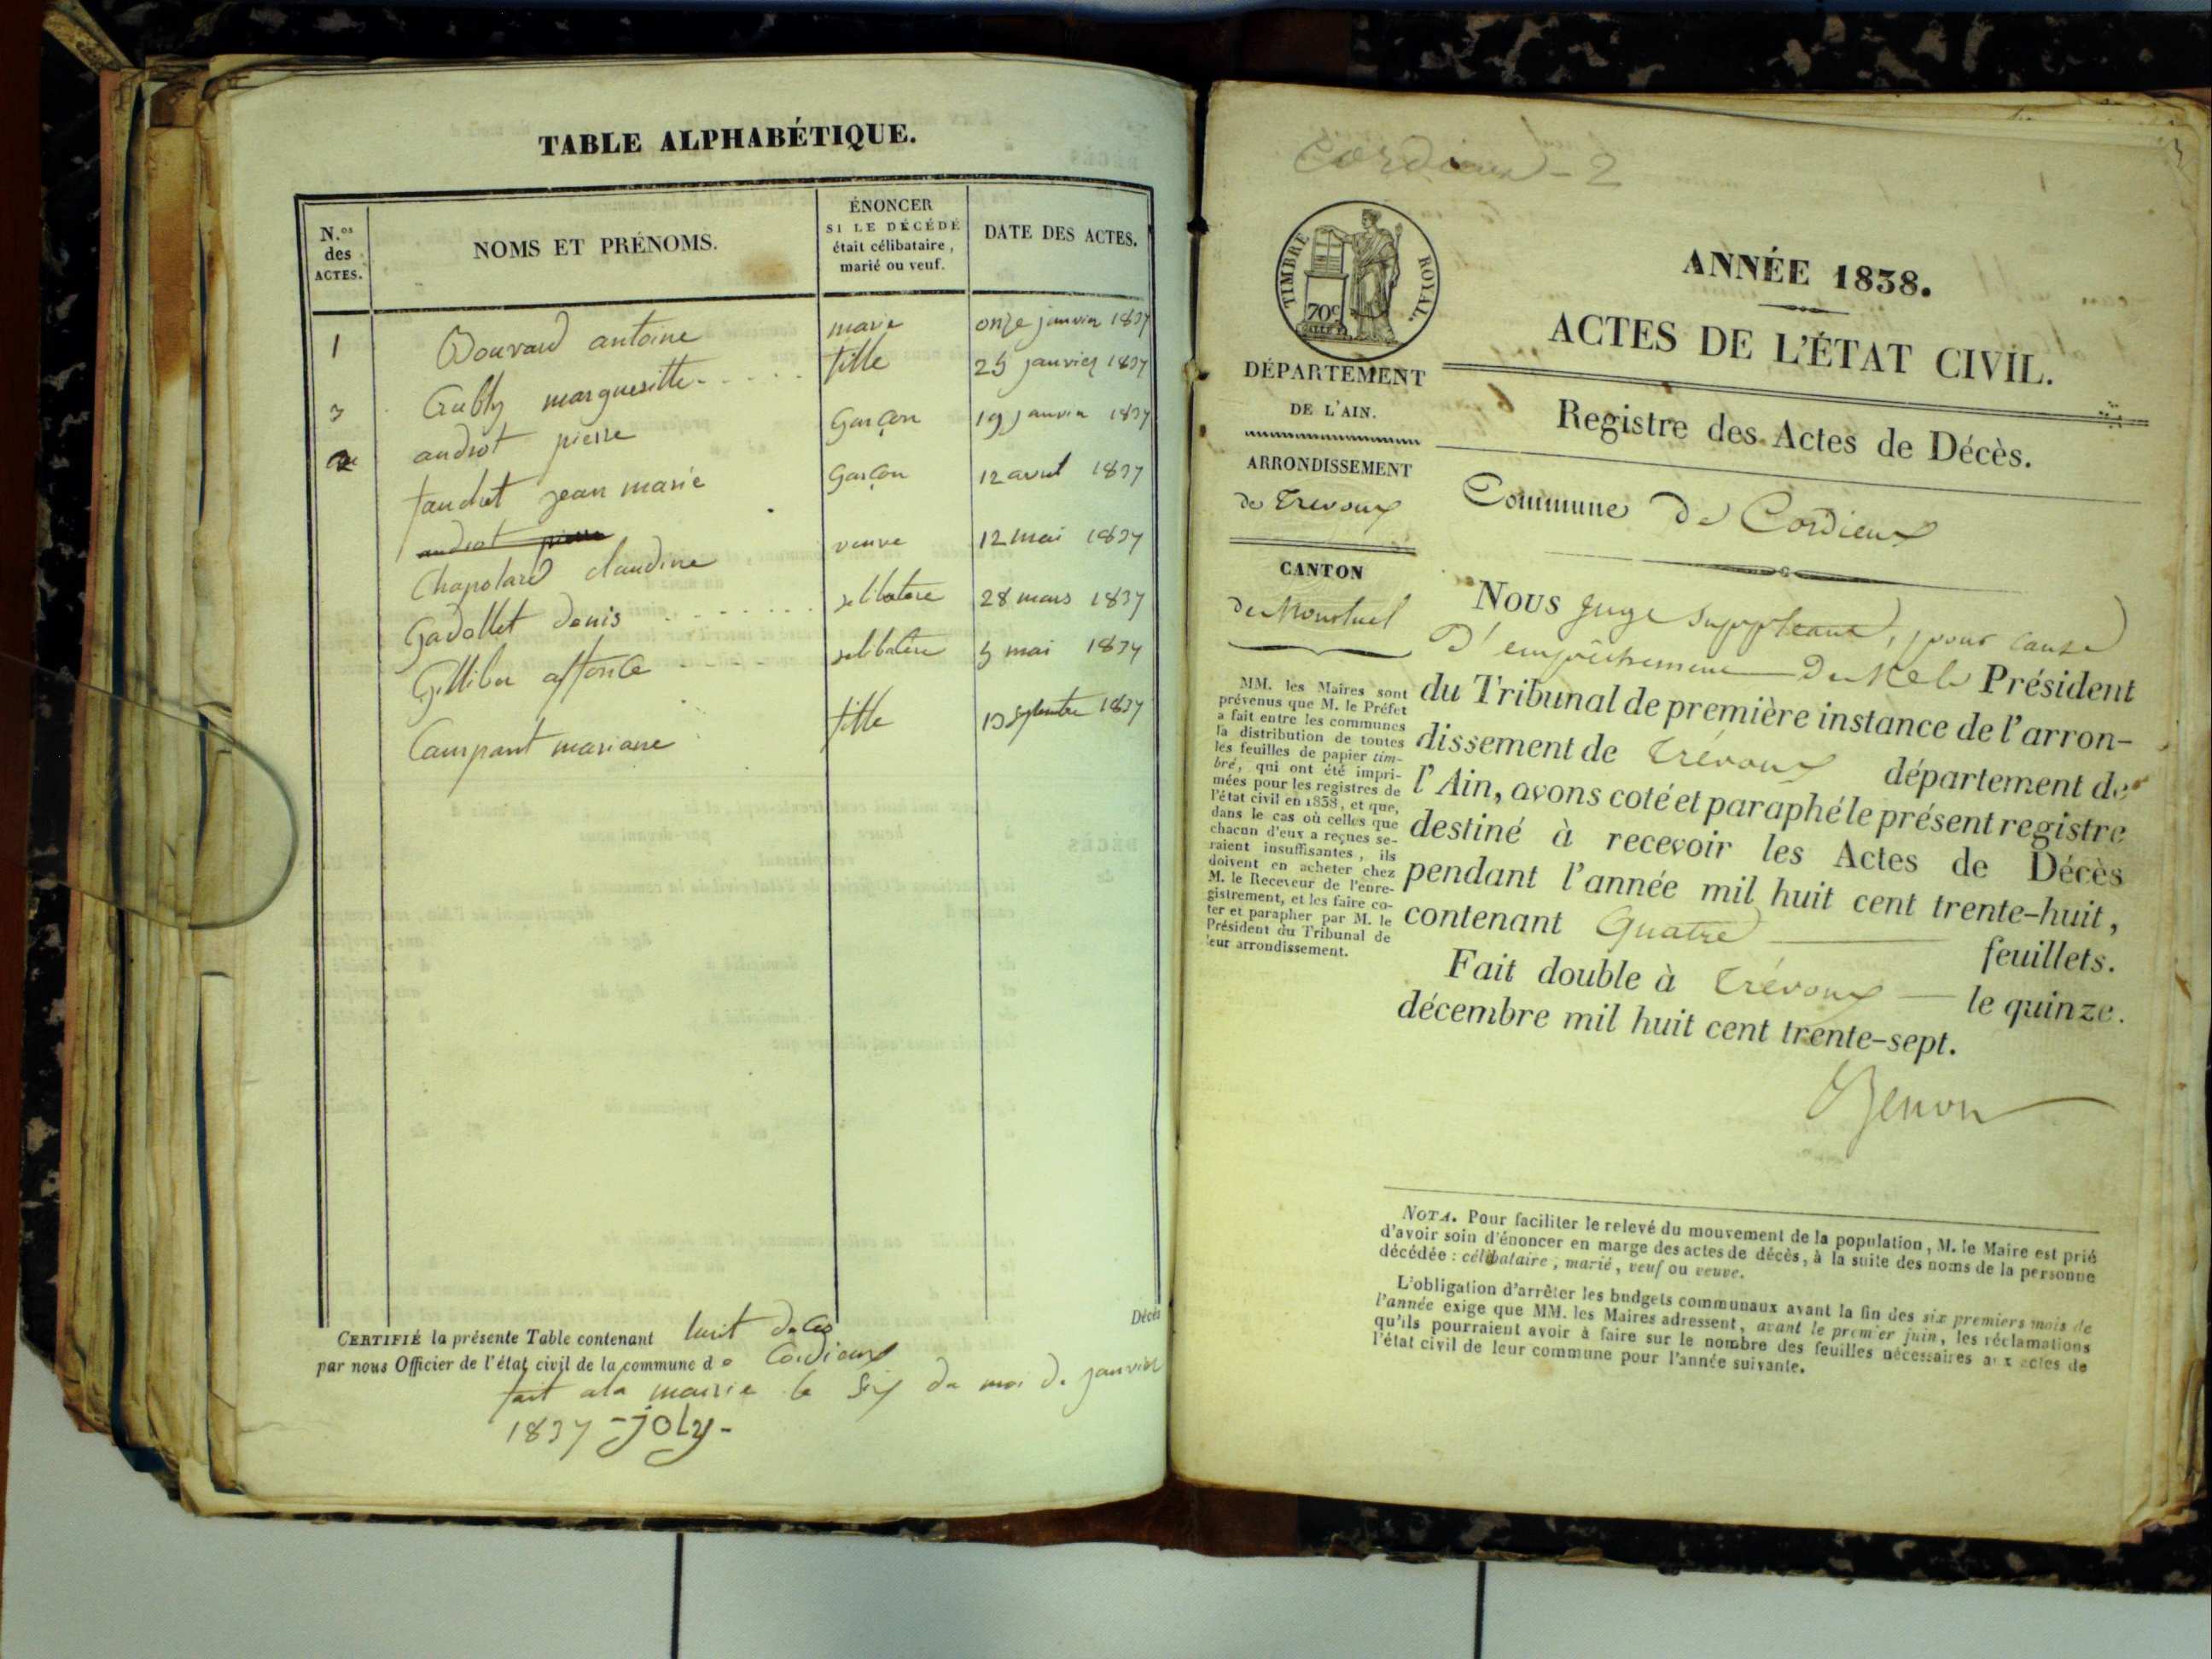 TABLE ALPHABÉTIQUE.
N.os des ACTES.
NOMS ET PRÉNOMS.
ÉNONCER
SI LE DÉCÉDÉ
était célibataire,
marié ou veuf.
DATE DES ACTES.
1 Bouvard antoine marie onze janvier 1837
margueritte fille 25 janvier 1837
3 audrot pierre Garçon 19 janvier 1837
2 jean marie Garçon 12 avril 1837
audrot pierre
Chapolard claudine veuve 12 mai 1837
Gadollet denis selibatere 28 mars 1837
selibatere 5 mai 1837
Campant mariane fille 13 septembre 1837
CERTIFIÉ la présente Table contenant huit
par nous Officier de l'état civil de la commune de Cordieux
fait ala mairie le six du moi de janvier
1837 -joly-
Décès
Cordieux - 2
TIMBRE ROYAL.
70c
ANNÉE 1838.
ACTES DE L'ÉTAT CIVIL.
Registre des Actes de Décès.
Commune de Cordieux
DÉPARTEMENT
DE L'AIN.
ARRONDISSEMENT
de Trevoux
CANTON
de Montluel
MM. les Maires sont
prévenus que M. le Préfet
a fait entre les communes
la distribution de toutes
les feuilles de papier tim-
bré, qui ont été impri-
mées pour les registres de
l'état civil en 1838, et que,
dans le cas où celles que
chacun d'eux a reçues se-
raient insuffisantes, ils
doivent en acheter chez
M. le Receveur de l'enre-
gistrement, et les faire co-
ter et parapher par M. le
Président du Tribunal de
leur arrondissement.
Nous Juge Suppleant, pour cause
d'empêchement de Président
du Tribunal de première instance de l'arron-
dissement de Trévoux département de
l'Ain, avons coté et paraphé le présent registre
destiné à recevoir les Actes de Décès
pendant l'année mil huit cent trente-huit,
contenant Quatre feuillets.
Fait double à Trévoux le quinze.
décembre mil huit cent trente-sept.
NOTA. Pour faciliter le relevé du mouvement de la population, M. le Maire est prié
d'avoir soin d'énoncer en marge des actes de décès, à la suite des noms de la personne
décédée : célibataire, marié, veuf ou veuve.
L'obligation d'arrêter les budgets communaux avant la fin des six premiers mois de
l'année exige que MM. les Maires adressent, avant le premier juin, les réclamations
qu'ils pourraient avoir à faire sur le nombre des feuilles nécessaires aux actes de
l'état civil de leur commune pour l'année suivante.